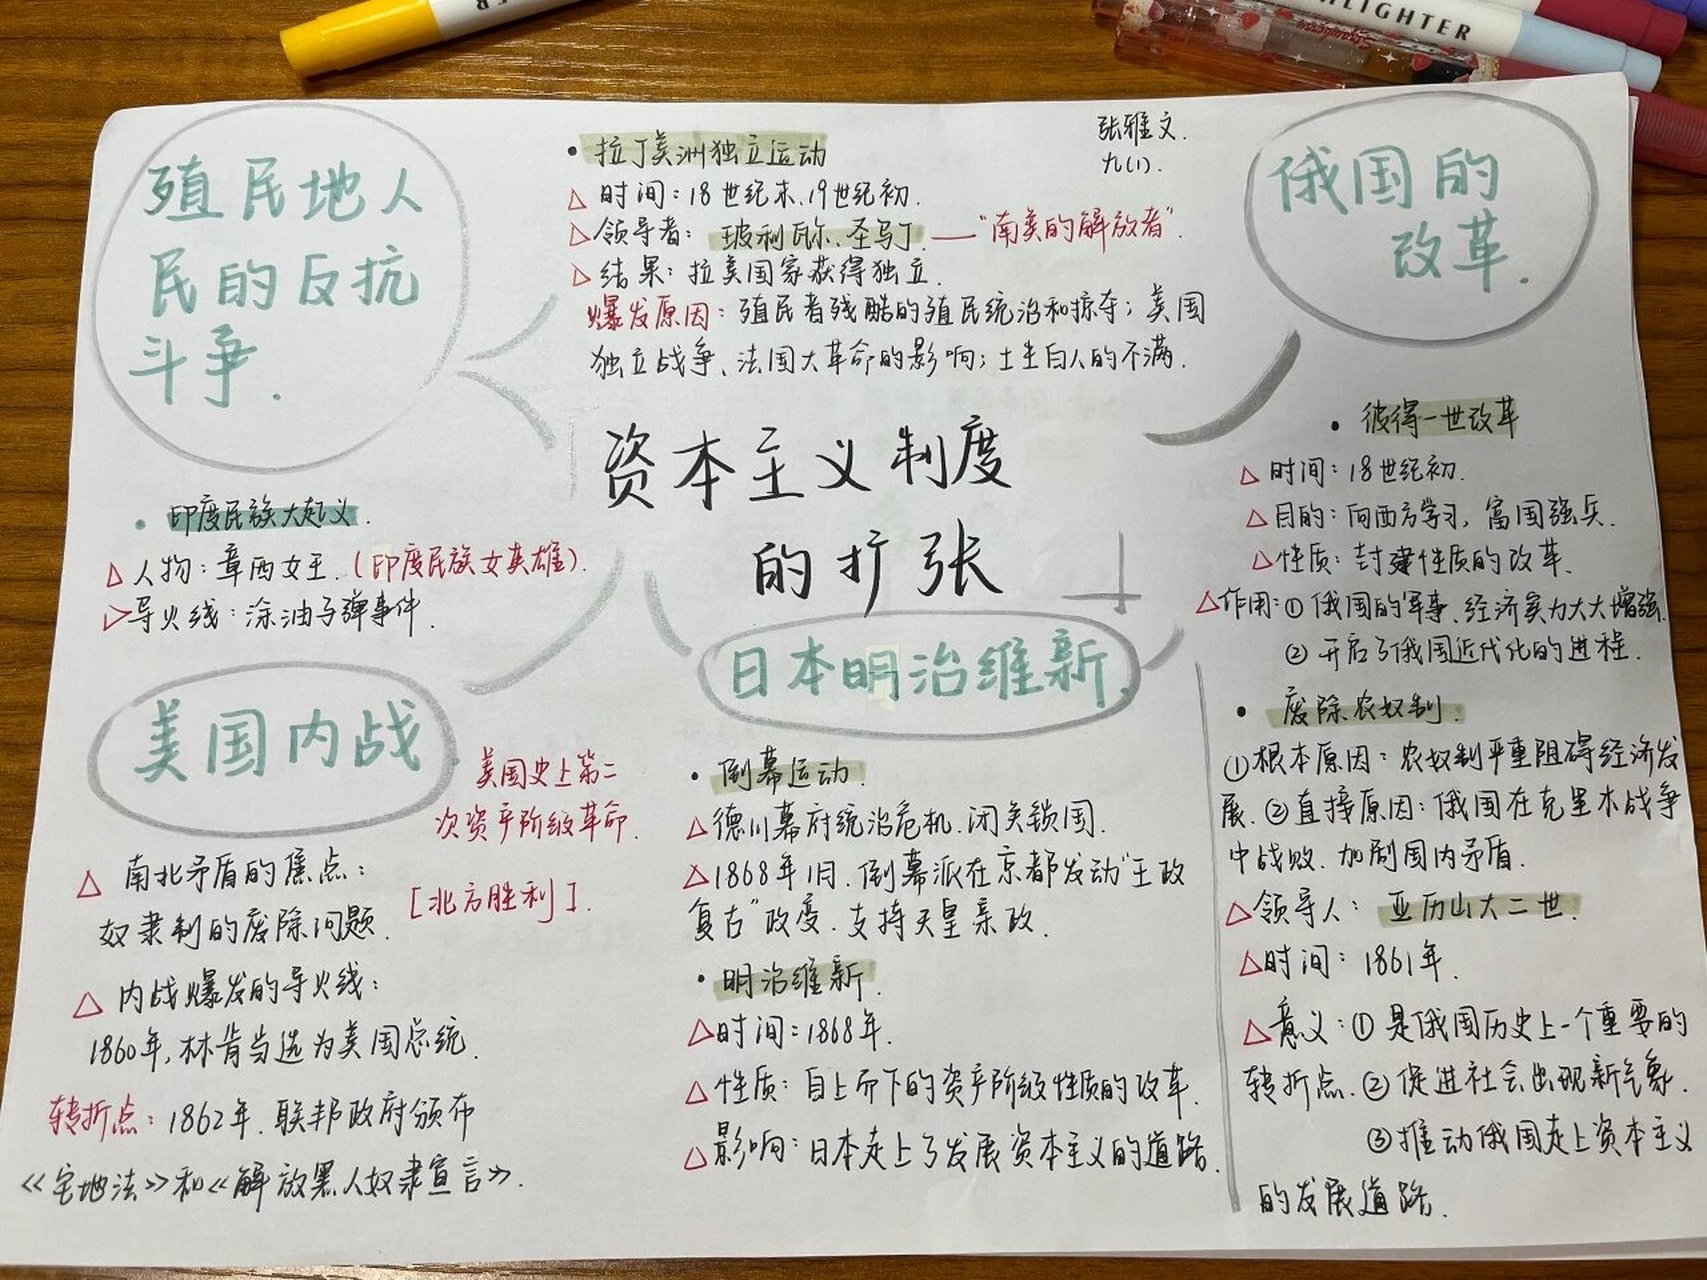 HIGHLIGHTER
张雅文.
九(1).
殖民地人
民的反抗
斗争.
• 拉丁美洲独立运动
△ 时间:18世纪末、19世纪初.
△领导者: 玻利瓦尔、圣马丁. —"南美的解放者".
△ 结果:拉美国家获得独立.
爆发原因:殖民者残酷的殖民统治和掠夺;美国
独立战争、法国大革命的影响;土生白人的不满.
俄国的
改革.
资本主义制度
的扩张
• 印度民族大起义.
△人物:章西女王.(印度民族女英雄).
△导火线:涂油子弹事件.
• 彼得一世改革
△时间:18世纪初.
△目的:向西方学习,富国强兵.
△性质:封建性质的改革.
△作用:① 俄国的军事、经济实力大大增强.
② 开启了俄国近代化的进程.
美国内战.
美国史上第二
次资产阶级革命.
△ 南北矛盾的焦点:
奴隶制的废除问题.
[北方胜利].
△ 内战爆发的导火线:
1860年,林肯当选为美国总统.
转折点:1862年.联邦政府颁布
《宅地法》和《解放黑人奴隶宣言》.
日本明治维新.
• 倒幕运动.
△德川幕府统治危机.闭关锁国.
△1868年1月.倒幕派在京都发动"王政
复古"政变.支持天皇亲政.
• 明治维新.
△时间:1868年.
△性质:自上而下的资产阶级性质的改革.
△影响:日本走上了发展资本主义的道路.
• 废除农奴制.
①根本原因:农奴制严重阻碍经济发
展.②直接原因:俄国在克里木战争
中战败.加剧国内矛盾.
△领导人: 亚历山大二世.
△时间: 1861年.
△意义:① 是俄国历史上一个重要的
转折点.② 促进社会出现新气象.
③推动俄国走上资本主义
的发展道路.